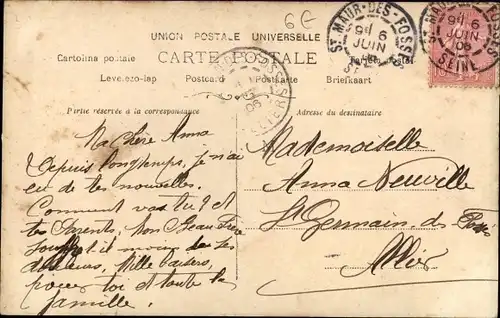 6E
UNION POSTALE UNIVERSELLE
Cartolina postale CARTE POSTALE
Levelezo-lap Postcard Postkarte Briefkaart
ST MAUR-DES-FOSSÉS
6 JUIN 06
SEINE
Partie réservée à la correspondance
Adresse du destinataire
Ma chère Anna
Depuis longtemps, je n'ai
eu de tes nouvelles.
Comment vas tu ? et
tes Parents, Mon Beau Frère
souffre-t-il moins de ses
douleurs, Mille baisers,
pour toi et toute la
famille.
Mademoiselle
Anna Neuville
St Germain des Fossés
Allier